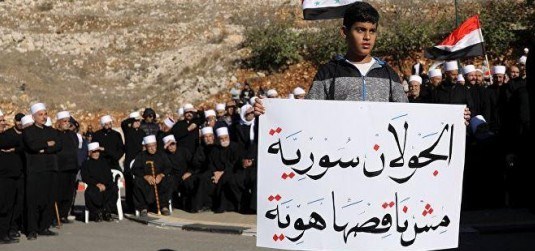 الجولان سورية
مش ناقصها هوية